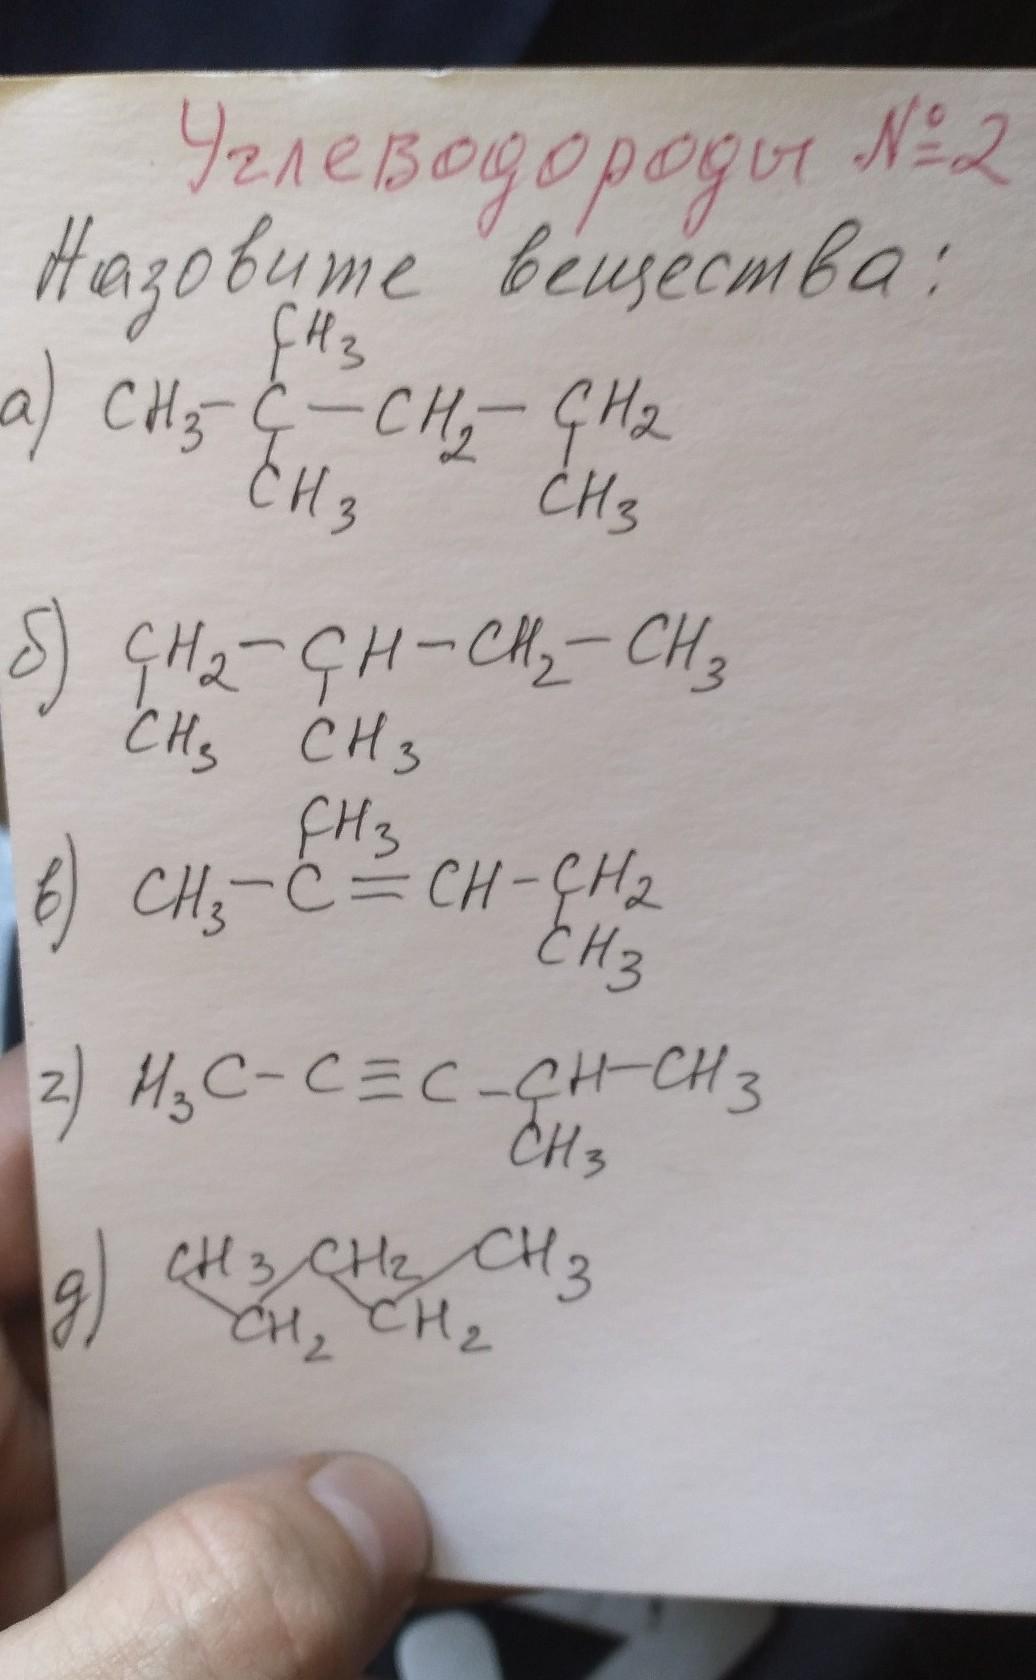 Углеводороды №2
Назовите вещества:
CH3
а) CH3-C-CH2-CH2
CH3 CH3
б) CH2-CH-CH2-CH3
CH3 CH3
CH3
в) CH3-C=CH-CH2
CH3
г) H3C-C≡C-CH-CH3
CH3
д) CH3 CH2 CH3
CH2 CH2